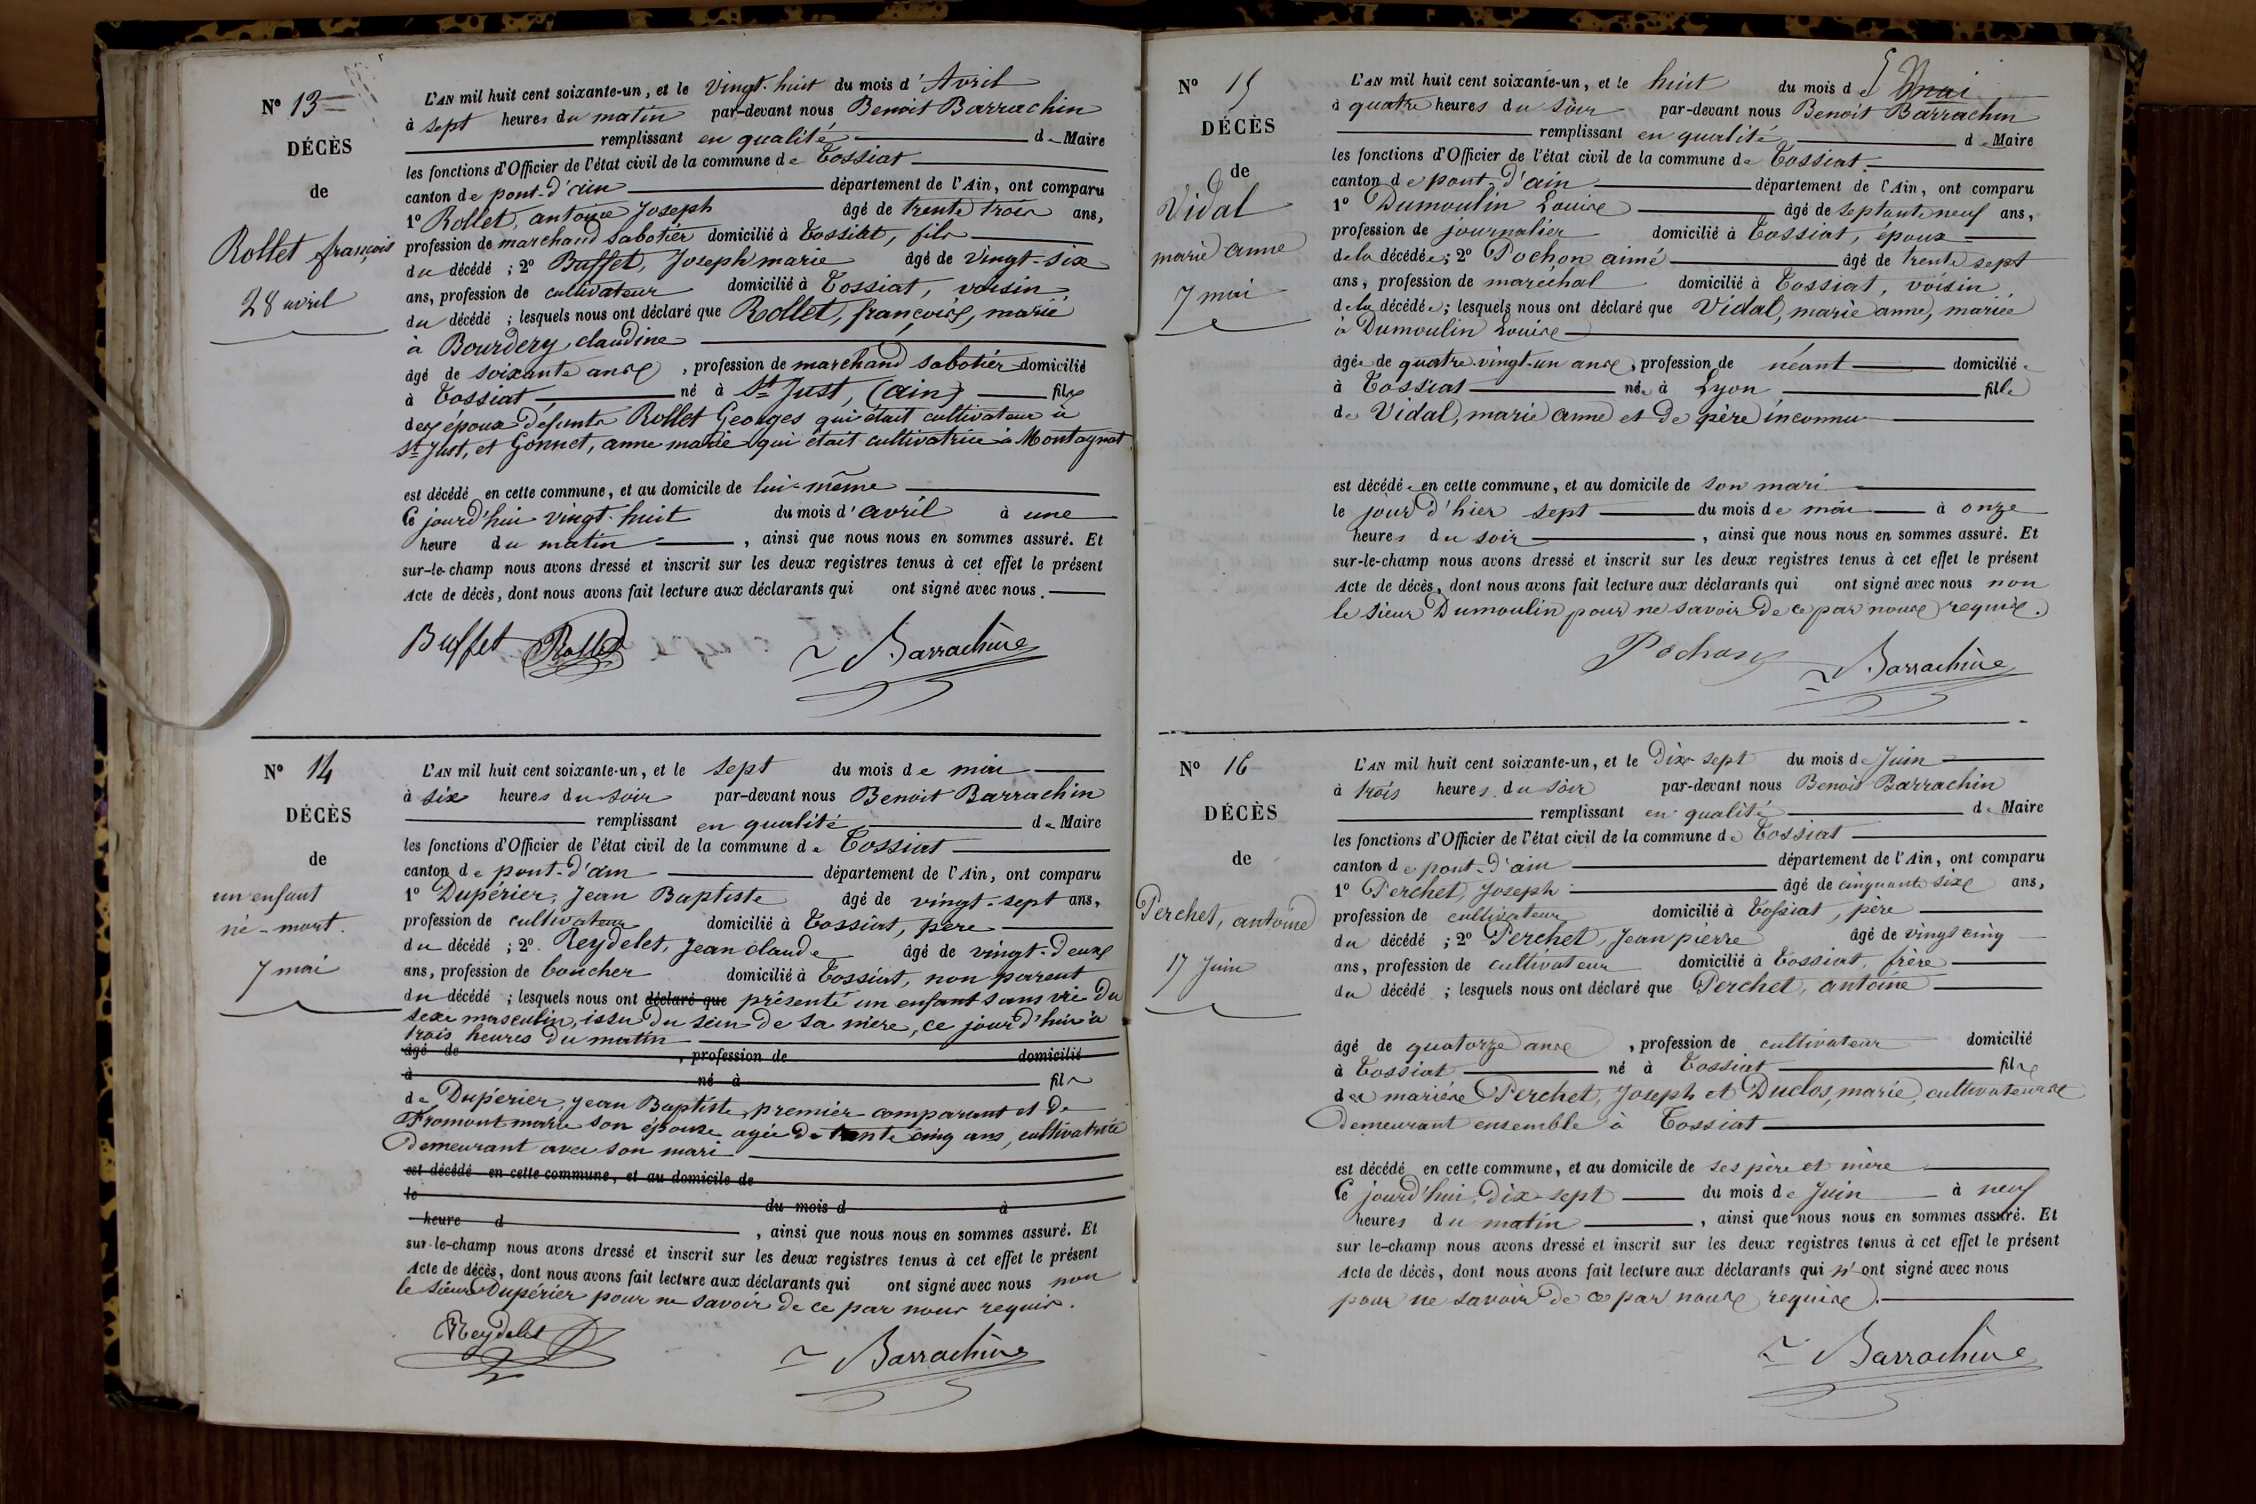 N° 13
DÉCÈS
de
Rollet françois
28 avril
L'AN mil huit cent soixante-un, et le vingt-huit du mois d'Avril
à sept heures du matin par-devant nous Benoit Barrachin
remplissant en qualité de Maire
les fonctions d'Officier de l'état civil de la commune de Tossiat
canton de pont-d'ain département de l'Ain, ont comparu
1° Rollet, antoine Joseph âgé de trente trois ans,
profession de marchand sabotier domicilié à Tossiat, fils
du décédé ; 2° Buffet, Joseph marie âgé de vingt-six
ans, profession de cultivateur domicilié à Tossiat, voisin
du décédé ; lesquels nous ont déclaré que Rollet, françois, marié
à Bourdery, claudine
âgé de soixante ans, profession de marchand sabotier domicilié
à Tossiat, né à St Just, (ain) fils
des époux défunts Rollet Georges qui était cultivateur à
St Just, et Gonnet, anne marie qui était cultivatrice à Montagnat
est décédé en cette commune, et au domicile de lui-même
Ce jourd'hui vingt-huit du mois d'avril à une
heure du matin, ainsi que nous nous en sommes assuré. Et
sur-le-champ nous avons dressé et inscrit sur les deux registres tenus à cet effet le présent
Acte de décès, dont nous avons fait lecture aux déclarants qui ont signé avec nous.
Buffet Rollet Barrachin
N° 14
DÉCÈS
de
un enfant
né-mort.
7 mai
L'AN mil huit cent soixante-un, et le sept du mois de mai
à six heures du soir par-devant nous Benoit Barrachin
remplissant en qualité de Maire
les fonctions d'Officier de l'état civil de la commune de Tossiat
canton de pont-d'ain département de l'Ain, ont comparu
1° Dupérier, Jean Baptiste âgé de vingt-sept ans,
profession de cultivateur domicilié à Tossiat, père
du décédé ; 2° Reydelet, Jean claude âgé de vingt-deux
ans, profession de boucher domicilié à Tossiat, non parent
du décédé ; lesquels nous ont déclaré que présenté un enfant sans vie du
sexe masculin, issu du sein de sa mère, ce jourd'hui à
trois heures du matin
âgé de , profession de domicilié
à né à fils
de Dupérier, Jean Baptiste, premier comparant et de
Fromont marie son épouse agée de trente cinq ans, cultivatrice
demeurant avec son mari
est décédé en cette commune, et au domicile de
le du mois d à
heure d , ainsi que nous nous en sommes assuré. Et
sur-le-champ nous avons dressé et inscrit sur les deux registres tenus à cet effet le présent
Acte de décès, dont nous avons fait lecture aux déclarants qui ont signé avec nous non
le sieur Dupérier pour ne savoir de ce par nous requis.
Reydelet Barrachin
N° 15
DÉCÈS
de
Vidal
marie anne
7 mai
L'AN mil huit cent soixante-un, et le huit du mois de mai
à quatre heures du soir par-devant nous Benoit Barrachin
remplissant en qualité de Maire
les fonctions d'Officier de l'état civil de la commune de Tossiat
canton de pont-d'ain département de l'Ain, ont comparu
1° Dumoulin Louis âgé de septante neuf ans,
profession de journalier domicilié à Tossiat, époux
de la décédée ; 2° Pochon aimé âgé de trente sept
ans, profession de maréchal domicilié à Tossiat, voisin
de la décédée ; lesquels nous ont déclaré que Vidal, marie anne, mariée
à Dumoulin Louis
âgée de quatre-vingt-un ans, profession de néant domiciliée
à Tossiat née à Lyon fille
de Vidal, marie anne et de père inconnu
est décédée en cette commune, et au domicile de son mari
le jour d'hier sept du mois de mai à onze
heures du soir, ainsi que nous nous en sommes assuré. Et
sur-le-champ nous avons dressé et inscrit sur les deux registres tenus à cet effet le présent
Acte de décès, dont nous avons fait lecture aux déclarants qui ont signé avec nous non
le sieur Dumoulin pour ne savoir de ce par nous requis.
Pochon Barrachin
N° 16
DÉCÈS
de
Perchet, antoine
17 Juin
L'AN mil huit cent soixante-un, et le dix-sept du mois de Juin
à trois heures du soir par-devant nous Benoit Barrachin
remplissant en qualité de Maire
les fonctions d'Officier de l'état civil de la commune de Tossiat
canton de pont-d'ain département de l'Ain, ont comparu
1° Perchet, Joseph âgé de cinquante six ans,
profession de cultivateur domicilié à Tossiat, père
du décédé ; 2° Perchet, Jean pierre âgé de vingt cinq
ans, profession de cultivateur domicilié à Tossiat, frère
du décédé ; lesquels nous ont déclaré que Perchet, antoine
âgé de quatorze ans, profession de cultivateur domicilié
à Tossiat né à Tossiat fils
des mariés Perchet, Joseph et Duclos, marie, cultivateurs
demeurant ensemble à Tossiat
est décédé en cette commune, et au domicile de ses père et mère
Ce jourd'hui, dix-sept du mois de Juin à neuf
heures du matin, ainsi que nous nous en sommes assuré. Et
sur le-champ nous avons dressé et inscrit sur les deux registres tenus à cet effet le présent
Acte de décès, dont nous avons fait lecture aux déclarants qui n'ont signé avec nous
pour ne savoir de ce par nous requis.
Barrachin